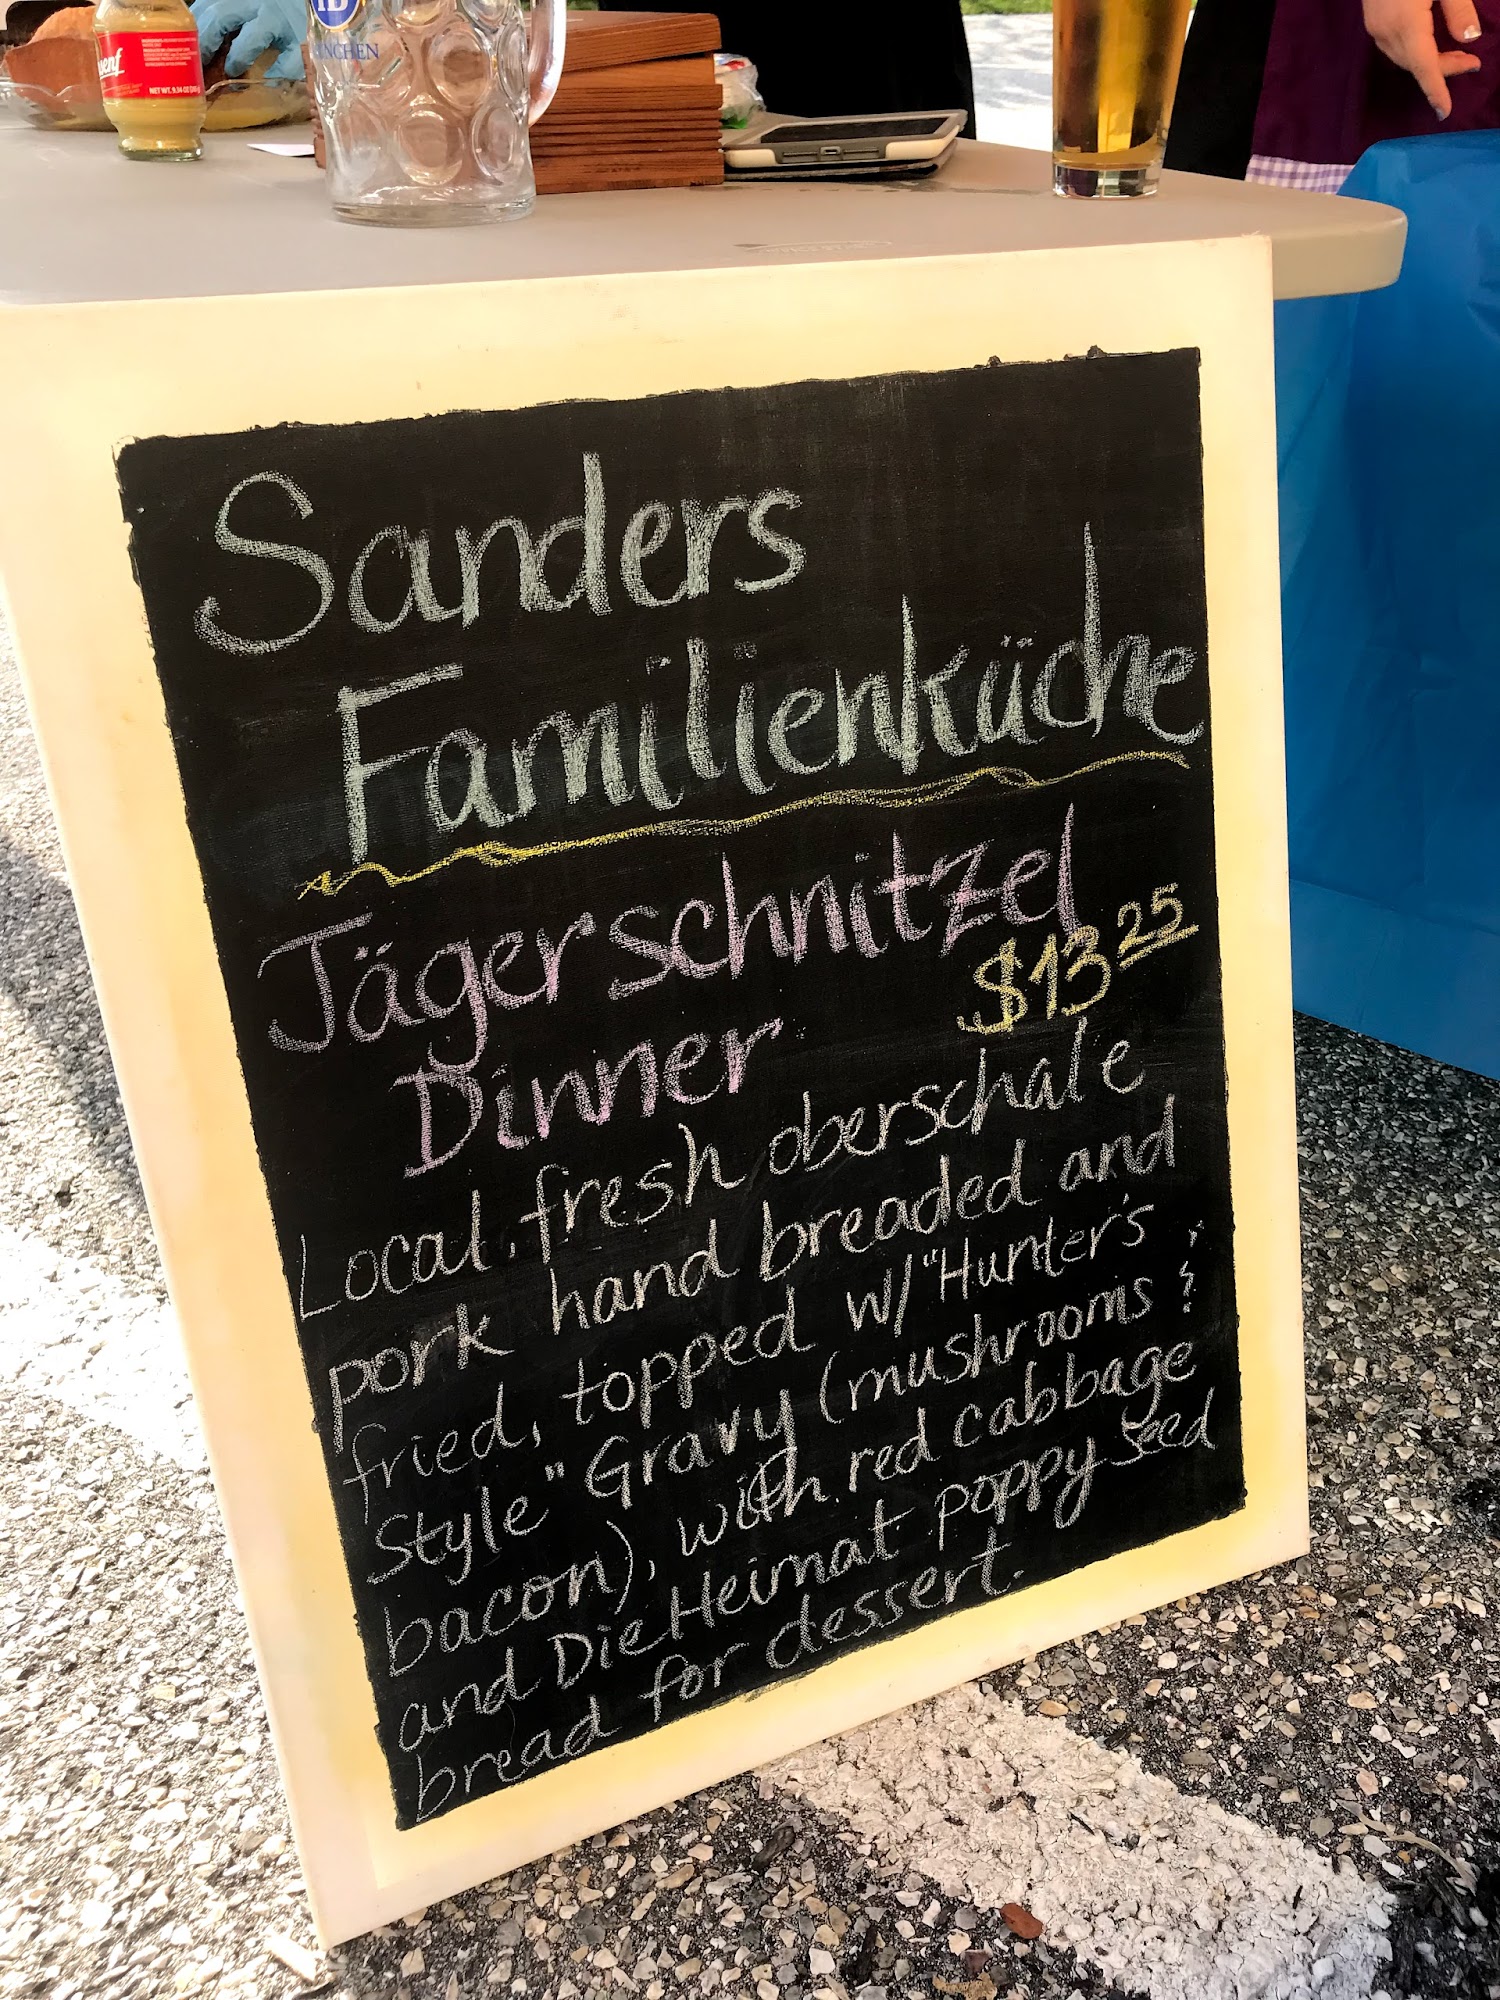 enf
NET WT. 9.34 OZ
HB
NCHEN
Sanders
Familienküche
Jägerschnitzel
$13 25
Dinner
Local, fresh oberschale
pork hand breaded and
fried, topped w/ "Hunter's
Style" Gravy (mushrooms &
bacon), with red cabbage
and Die Heimat poppy seed
bread for dessert.